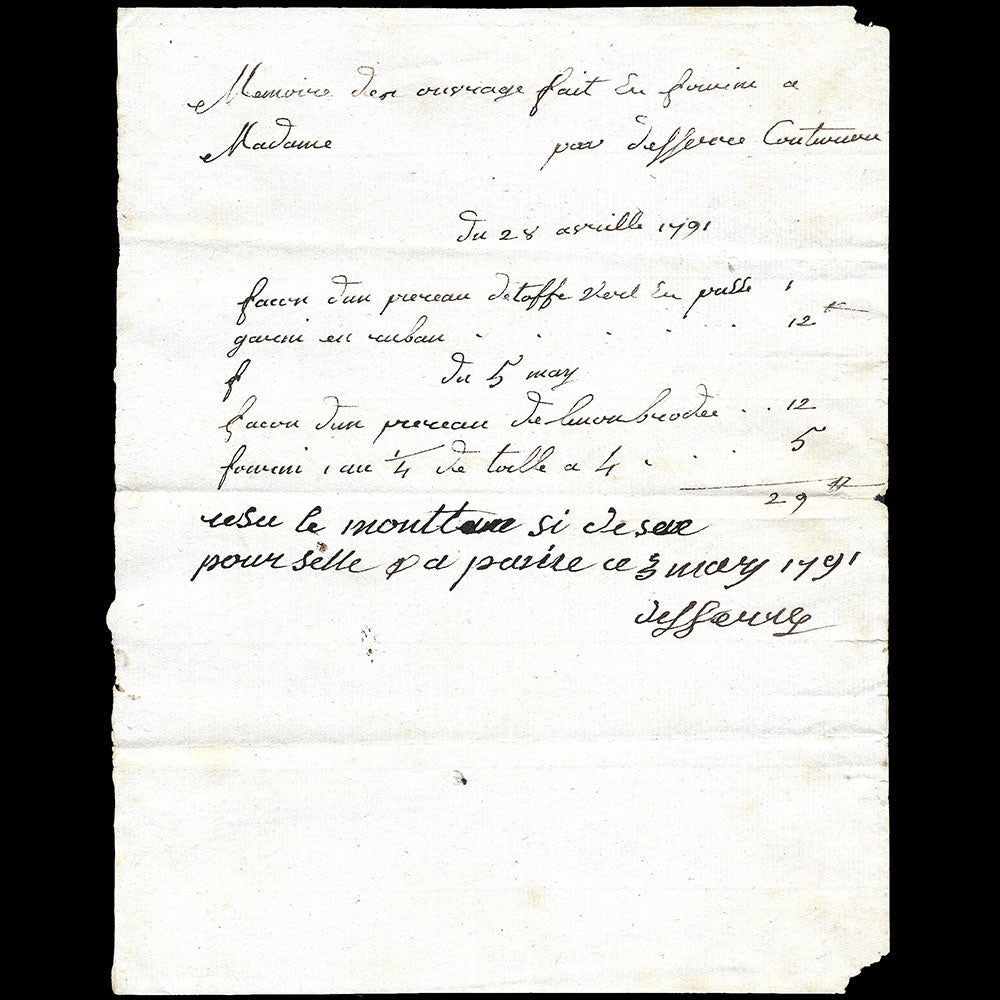 Memoire des ouvrage fait Eu fourni a
Madame par desserre Couturiere
du 28 avrille 1791
facon dun piereau detoffe Verd Eu pusse
garni en ruban . . . . . . 12 ⁌
f du 5 may
facon dun piereau de linon brodée . . 12
fourni 1 au 1/4 de toille a 4 . . . 5
29
resu le monttan si desu
pour selle a parise ce 5 may 1791
desserre